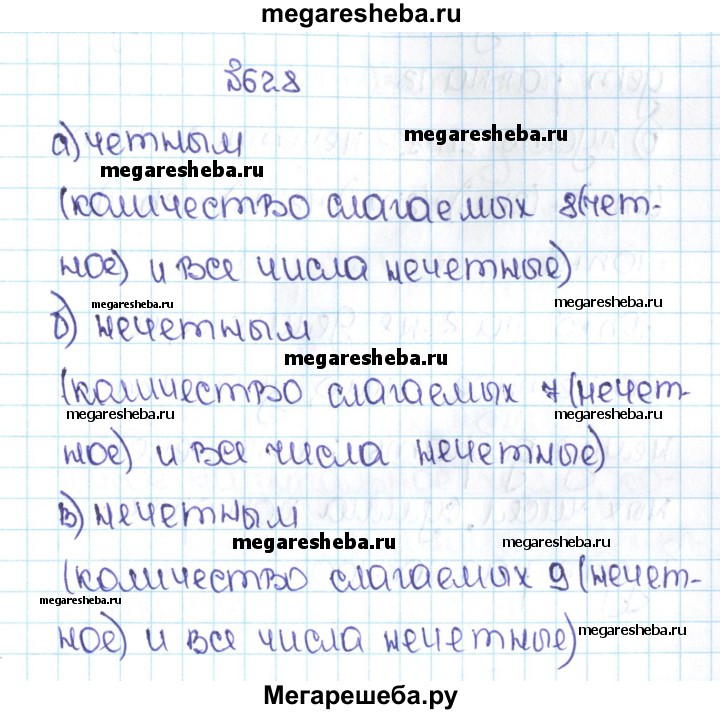 megaresheba.ru
№628
а) четным
megaresheba.ru
megaresheba.ru
(количество слагаемых 8(чет-
ное) и все числа нечетные)
megaresheba.ru
megaresheba.ru
б) нечетным
megaresheba.ru
(количество слагаемых 7 (нечет-
megaresheba.ru
megaresheba.ru
ное) и все числа нечетные)
в) нечетным
megaresheba.ru
megaresheba.ru
(количество слагаемых 9 (нечет-
megaresheba.ru
ное) и все числа нечетные)
megaresheba.ru
Мегарешеба.ру